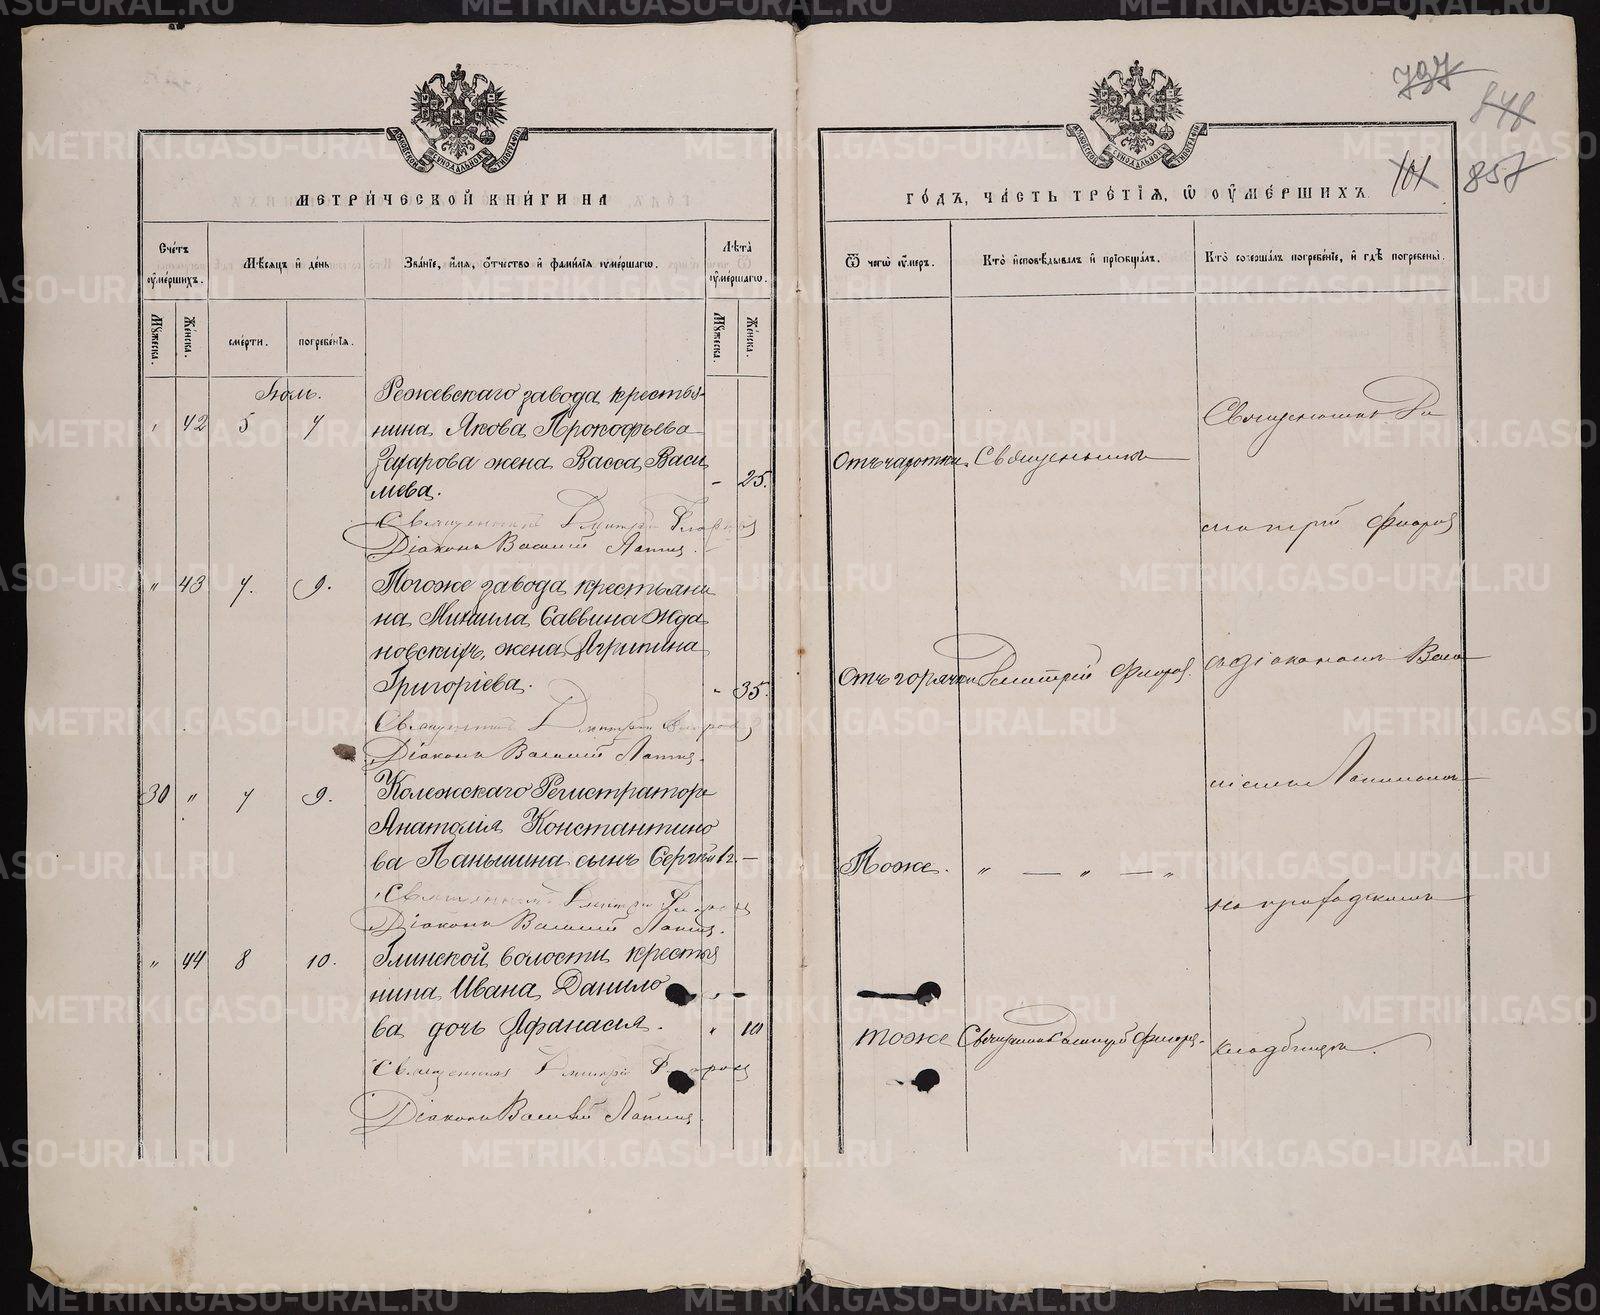 737
848
101 857
МЕТРИ́ЧЕСКОЙ КНИ́ГИ НА
Сче́тъ ᲂу҆ме́ршихъ.
Мѣ́сяцъ и҆ де́нь
Зва́нїе, и҆́мя, ѻ҆́тчество и҆ фами́лїя ᲂу҆ме́ршагѡ.
Лѣ̑та̀ ᲂу҆ме́ршагѡ.
Мꙋ́жеска.
Же́нска.
сме́рти.
погребе́нїя.
Мꙋ́жеска.
Же́нска.
Іюль.
Режевскаго завода крестья-
„ 42 5 7 нина Якова Прокофьева
Захарова жена Васса Васи
льева. - 25.
Священникъ Дмитрій Флоров
Діаконъ Василій Лапин.
„ 43 7. 9. Тогоже завода крестьяни
на Михаила Саввина Жда
новскихъ, жена Агрипина
Григоріева. „ 35.
Священникъ Дмитрій Флоров
Діаконъ Василій Лапин.
30 „ 7 9. Колежскаго Регистратора
Анатолія Константино
ва Паньшина сынъ Сергій 1/2. —
Священникъ Дмитрій Флоров
Діаконъ Василій Лапин.
„ 44 8 10. Глинской волости крестья
нина Ивана Данило
ва дочь Афанасія. „ 10
Священникъ Дмитрій Флоров
Діаконъ Василій Лапин.
ГО́ДЪ, ЧА́СТЬ ТРЕ́ТЇЯ, Ѡ҆ ОУ҆МЕ́РШИХЪ
Ѿ чегѡ̀ ᲂу҆́меръ.
Кто̀ и҆сповѣ́дывалъ и҆ прїѡбща́лъ.
Кто̀ соверша́лъ погребе́нїе, и҆ гдѣ̀ погребены̀.
Отъ чахотки Священникъ
Отъ горячки Дмитрій Флоров.
Тоже. „ — „ — „
тоже Священникъ Дмитрій Флоров.
Священникъ Ди
митрій Флоров
съ діакономъ Васи
ліемъ Лапинымъ
на приходскомъ
кладбищѣ.
METRIKI.GASO-URAL.RU